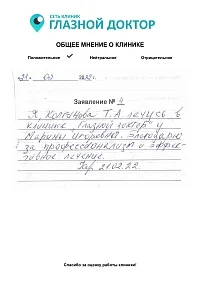 СЕТЬ КЛИНИК
ГЛАЗНОЙ ДОКТОР
ОБЩЕЕ МНЕНИЕ О КЛИНИКЕ
Положительное Нейтральное Отрицательное
Заявление № 4
Я, Т.А лечусь в
клинике "Глазной доктор" у
Марины Игоревны. Благодарю
за профессионализм и эффек-
тивное лечение.
21.02.22.
Спасибо за оценку работы клиники!